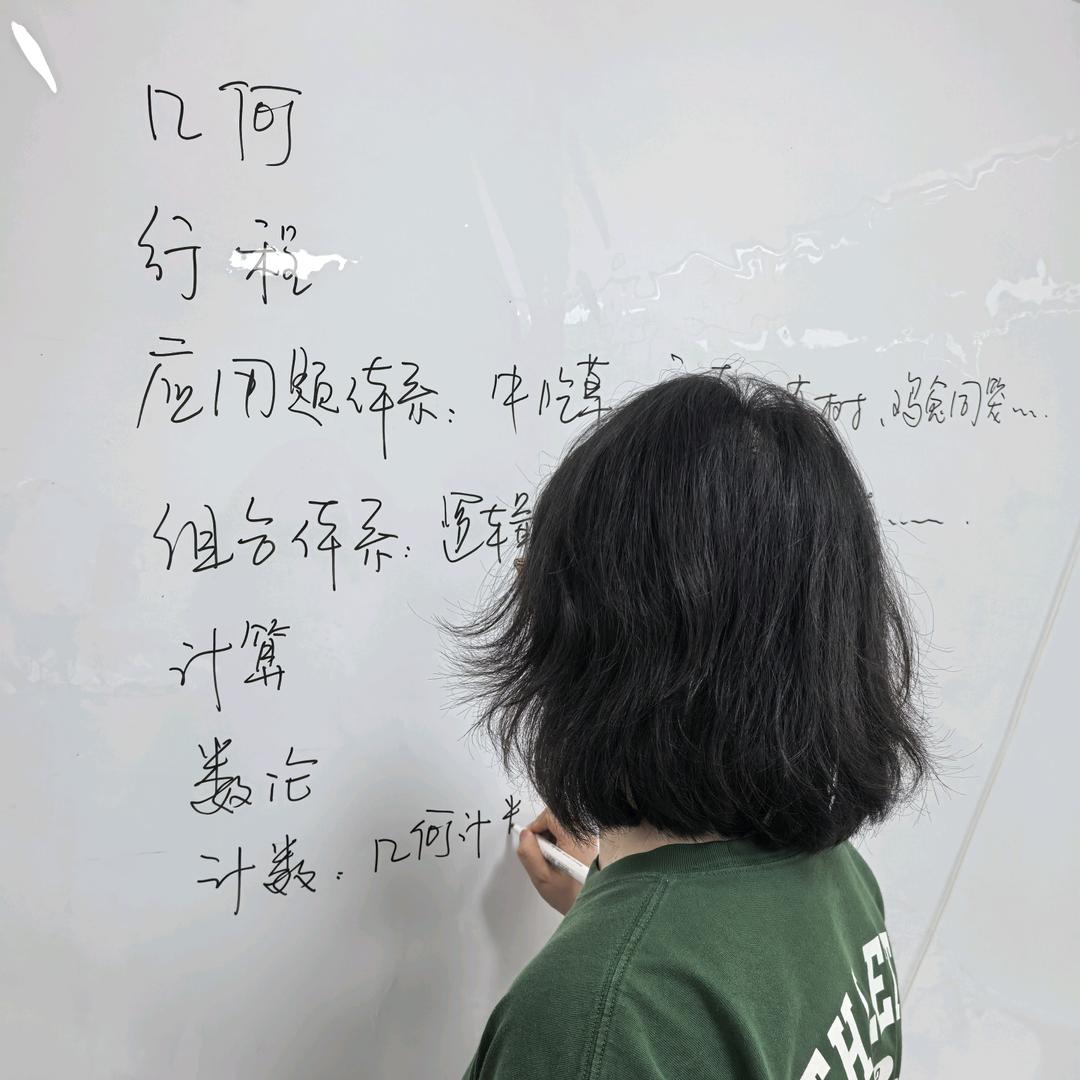 几何
行程
应用题体系：牛吃草 树、鸡兔同笼……
组合体系：逻辑 ……
计算
数论
计数：几何计